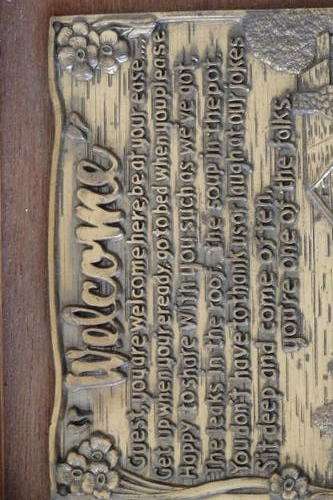 Welcome
Guest, you're welcome here, be at your ease...
Get up when you're ready, go to bed when you please.
Happy to share with you such as we've got,
The leaks in the roof, the soup in the pot.
You don't have to thank us or laugh at our jokes
Sit deep and come often,
you're one of the folks.